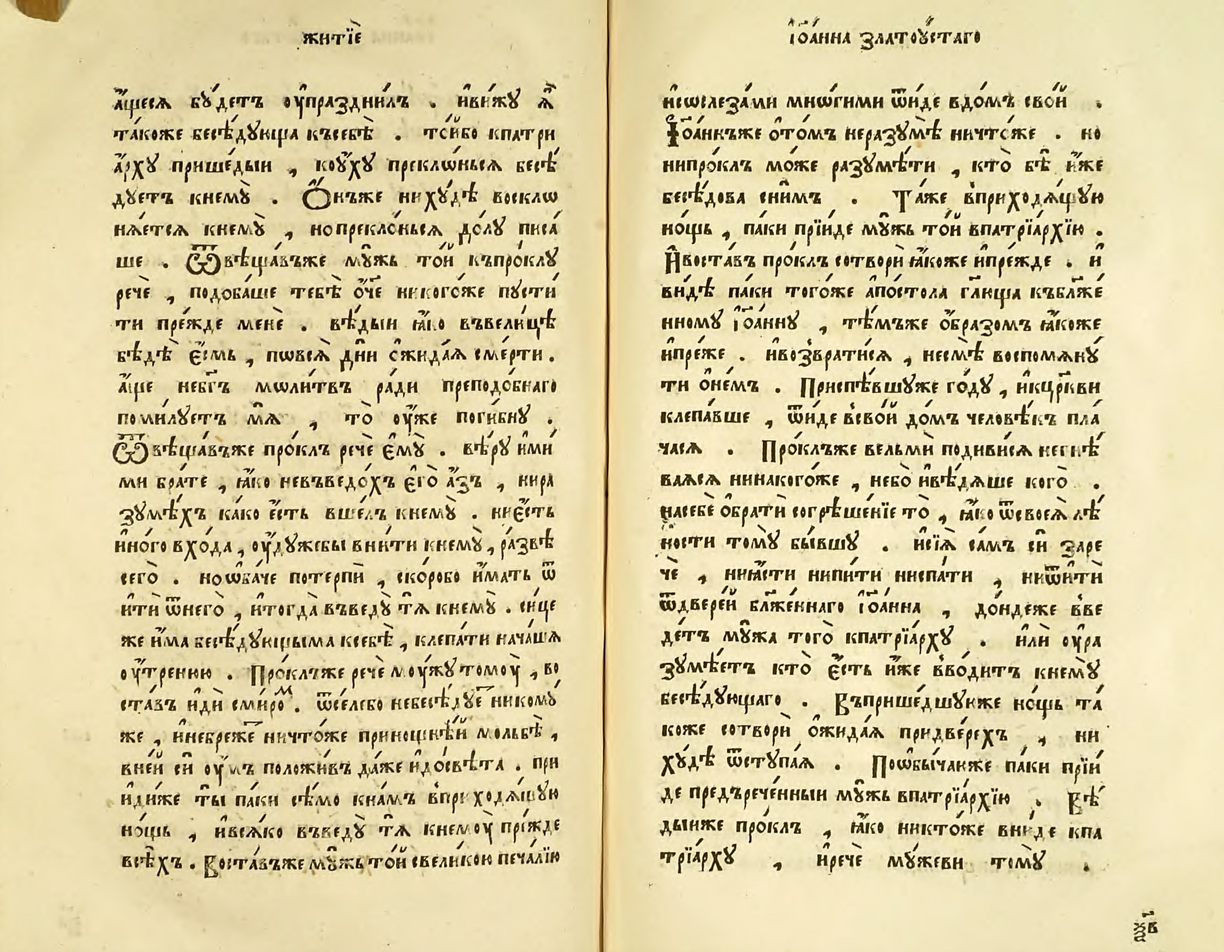 житїе
а҆́щеся бꙋ́детъ ᲂу҆пра́зднилъ . ивижꙋ ѧ҆̀
та́коже бесѣ́дꙋюща къ себѣ̀ . то́ибо к патри
а́рхꙋ прише́дыи , ко ᲂу҆́хꙋ прекло́ньсѧ бесѣ́
дꙋетъ к немꙋ̀ . Ѻ҆́нъже ни хꙋ́дѣ восклѡ
нѧ́етсѧ к немꙋ̀ , но прекло́ньсѧ до́лꙋ писа́
ше . Ѿвѣща́въже мꙋ́жь то́и къ про́клꙋ
речѐ , подоба́ше тебѣ̀ ѻ҆́че никого́же пꙋсти́
ти пре́жде менѐ . вѣ́дыи ꙗ҆́ко въ вели́цѣ
бѣдѣ̀ є҆́смь , по всѧ̀ дн҃и ѻ҆жида́ѧ сме́рти .
а҆́ще не бг҃ъ моли́твъ ра́ди преподо́бнаго
поми́лꙋетъ мѧ̀ , то̀ ᲂу҆́же поги́бнꙋ .
Ѿвѣща́въже про́клъ речѐ є҆мꙋ̀ . вѣ́рꙋ и҆ми́
ми бра́те , ꙗ҆́ко не въведо́хъ є҆го̀ а҆́зъ , ни ра
зꙋмѣ́хъ ка́ко є҆́сть вше́лъ к немꙋ̀ . нѣ́сть
и҆но́го вхо́да , ѿꙋдꙋ́жебы вни́ти к немꙋ̀ , ра́звѣ
сего̀ . но ѻ҆ба́че потерпѝ , ско́робо и҆́мать ѿ
ити ѿ него̀ , и҆ тогда̀ въведꙋ̀ тѧ̀ к немꙋ̀ . си́це
же и҆́ма бесѣ́дꙋющыма к себѣ̀ , клепа́ти нача́шѧ
ᲂу҆́тренюю . Про́клъже речѐ моу́жꙋ томоу̀ , во
ста́въ и҆дѝ с ми́ром . ѿсе́лебо не бесѣ́дꙋе никомꙋ̀
же , и҆ не бреже́ ничто́же приноси́мѣи мольбѣ̀ ,
в не́и си́и ᲂу҆́мъ положи́въ да́же и҆ до свѣ́та . при
и҆ди́же ты̀ па́ки сѣ́мо к на́мъ в приходѧ́щꙋю
но́щь , и҆ всѧ́ко въведꙋ̀ тѧ̀ к немоу̀ пре́жде
всѣ́хъ . Воста́въже мꙋ́жь то́и с вели́кою печа́лїю
і҆ѡа́нна златоꙋ́стаго
и҆ со слеза́ми мно́гими ѿи́де в до́мъ сво́и .
І҆ѡа́ннъже ѻ҆ то́мъ не разꙋмѣ̀ ничто́же . но
ни про́клъ мо́же разꙋмѣ́ти , кто̀ бѣ̀ и҆́же
бесѣ́дова с ни́мъ . Та́же в приходѧ́щꙋю
но́щь , па́ки прїи́де мꙋ́жь то́и в патрїа́рхїю .
И воста́въ про́клъ сотворѝ ꙗ҆́коже и҆ пре́жде . и҆
ви́дѣ па́ки того́же а҆по́стола гл҃юща къ бл҃же́
нномꙋ і҆ѡа́ннꙋ , тѣ́мъже ѻ҆́бразомъ ꙗ҆́коже
и҆ пре́же . и҆ возврати́сѧ , не смѣ̀ воспомѧнꙋ́
ти ѻ҆ не́мъ . Приспѣ́вшꙋже го́дꙋ , и҆ к цр҃кви
клепа́вше , ѿи́де в сво́и до́мъ человѣ́къ пла́
часѧ . Про́клъже вельмѝ подиви́сѧ не гнѣ́
ваѧсѧ ни на кого́же , не бо и҆ вѣ́дѧше кого̀ .
на себе ѻ҆братѝ согрѣше́нїе то̀ , ꙗ҆́ко ѿ своеѧ̀ лѣ́
ности томꙋ̀ бы́вшꙋ . и҆ сїѧ̀ са́мъ си́и заре
чѐ , ни ꙗ҆́сти ни пи́ти ни спа́ти , ни ѿи́ти
ѿ двере́и бл҃же́ннаго і҆ѡа́нна , до́ндеже вве
де́тъ мꙋ́жа того̀ к патрїа́рхꙋ . и҆лѝ ᲂу҆ра
зꙋмѣ́етъ кто̀ є҆́сть и҆́же вво́дитъ к немꙋ̀
бесѣ́дꙋющаго . Въ прише́дшꙋюже но́щь та́
коже сотворѝ ѻ҆жида́ѧ при две́рехъ , ни
хꙋ́дѣ ѿстꙋпа́ѧ . По ѻ҆бы́чаюже па́ки прїи́
де предърече́нныи мꙋ́жь в патрїа́рхїю . Вѣ́
дыиже про́клъ , ꙗ҆́ко никто́же вни́де к па
трїа́рхꙋ , и҆ речѐ мꙋ́жеви томꙋ̀ .